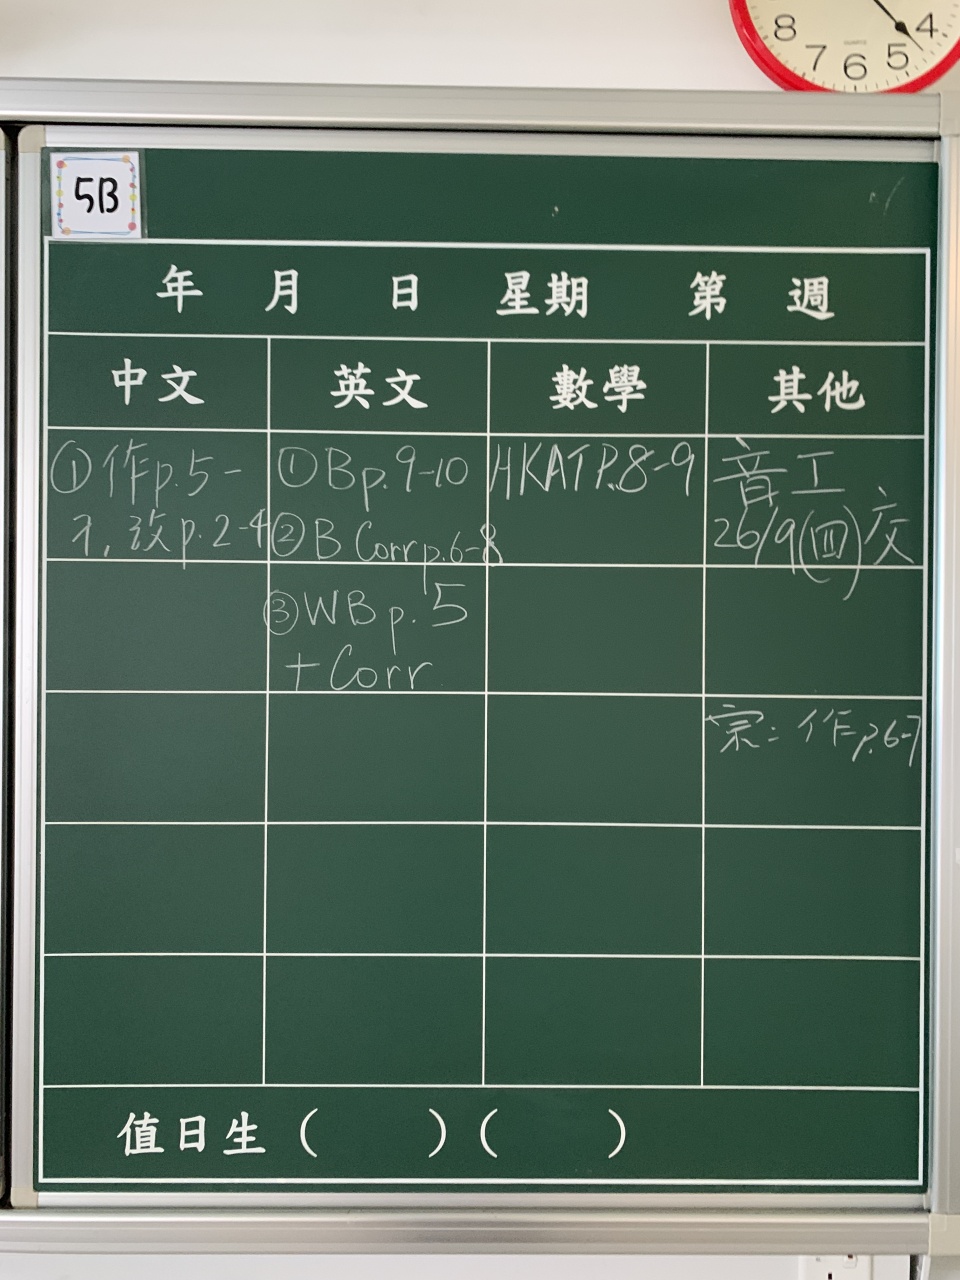 8 7 6 5 4
QUARTZ
5B
年 月 日 星期 第 週
中文 英文 數學 其他
①作p.5-
改p.2-4
①Bp.9-10
②B Corr p.6-8
③WB p.5
+Corr
HKAT P.8-9
音工
26/9(四)交
宗:作p.6-7
值日生( )( )